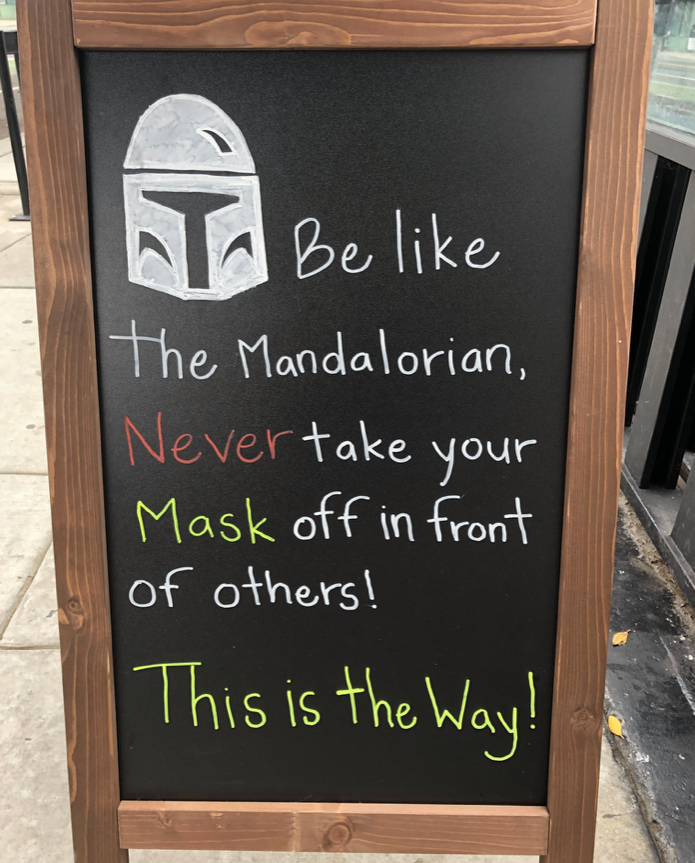 Be like
the Mandalorian,
Never take your
Mask off in front
of others!
This is the Way!